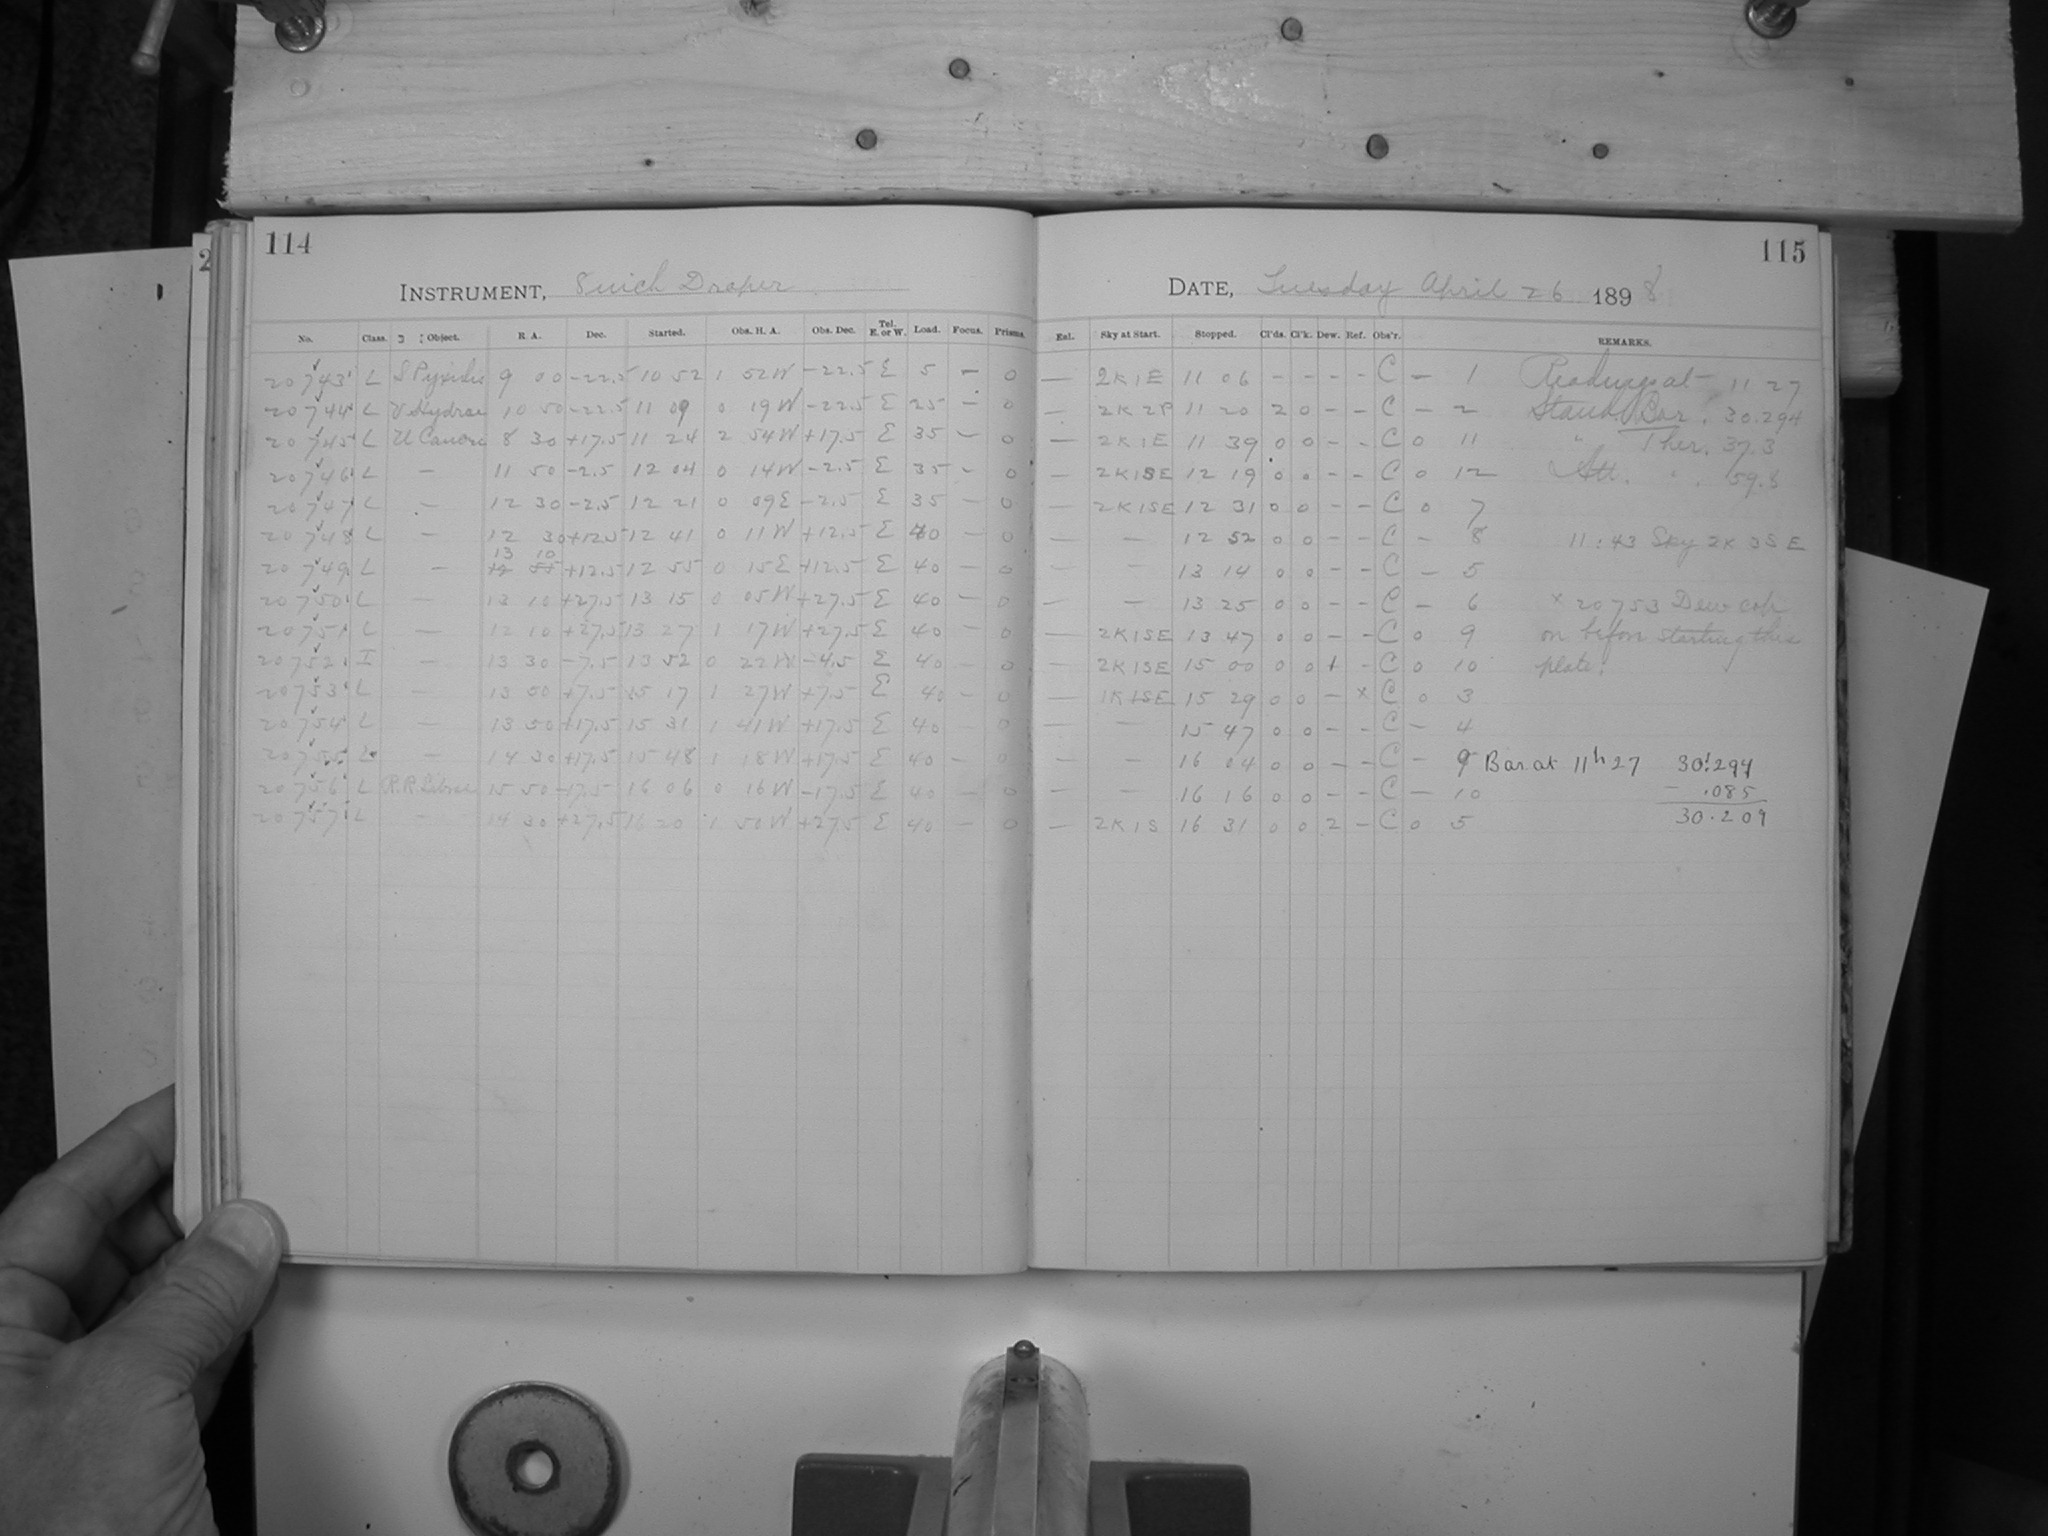 114
INSTRUMENT, 8 inch Draper
No. Class. Object. R. A. Dec. Started. Obs. H. A. Obs. Dec. Tel. E. or W. Load. Focus. Prisms.
20743 L S Pyxidis 9 00 -22.5 10 52 1 52W -22.5 E 5 - 0
20744 L V Hydrae 10 50 -22.5 11 09 0 19W -22.5 E 25 - 0
20745 L U Cancri 8 30 +17.5 11 24 2 54W +17.5 E 35 - 0
20746 L - 11 50 -2.5 12 04 0 14W -2.5 E 35 - 0
20747 L - 12 30 -2.5 12 21 0 09E -2.5 E 35 - 0
20748 L - 12 30 +12.5 12 41 0 11W +12.5 E 40 - 0
13 10
20749 L - +12.5 12 55 0 15E +12.5 E 40 - 0
20750 L - 13 10 +27.5 13 15 0 05W +27.5 E 40 - 0
20751 L - 12 10 +27.5 13 27 1 17W +27.5 E 40 - 0
20752 I - 13 30 -7.5 13 52 0 22W -4.5 E 40 - 0
20753 L - 13 50 +7.5 15 17 1 27W +7.5 E 40 - 0
20754 L - 13 50 +17.5 15 31 1 41W +17.5 E 40 - 0
20755 L - 14 30 +17.5 15 48 1 18W +17.5 E 40 - 0
20756 L R.R. Librae 15 50 -17.5 16 06 0 16W -17.5 E 40 - 0
20757 L - 14 30 +27.5 16 20 1 50W +27.5 E 40 - 0
115
DATE, Tuesday April 26 1898
Enl. Sky at Start. Stopped. Cl'ds. Cl'k. Dew. Ref. Obs'r. REMARKS.
- 2K1E 11 06 - - - - C - 1 Readings at 11 27
- 2K2P 11 20 2 0 - - C - 2 Stand. Bar. 30.294
- 2K1E 11 39 0 0 - - C 0 11 " Ther. 37.3
- 2K1SE 12 19 0 0 - - C 0 12 Att. " 59.8
- 2K1SE 12 31 0 0 - - C 0 7
- - 12 52 0 0 - - C - 8 11:43 Sky 2K3SE
- - 13 14 0 0 - - C - 5
- - 13 25 0 0 - - C - 6 x 20753 Dew cap
- 2K1SE 13 47 0 0 - - C 0 9 on before starting this
- 2K1SE 15 00 0 0 + - C 0 10 plate.
- 1K1SE 15 29 0 0 - x C 0 3
- - 15 47 0 0 - - C - 4
- - 16 04 0 0 - - C - 9 Bar at 11h27 30.294
- - 16 16 0 0 - - C - 10 - .085
- 2K1S 16 31 0 0 2 - C 0 5 30.209